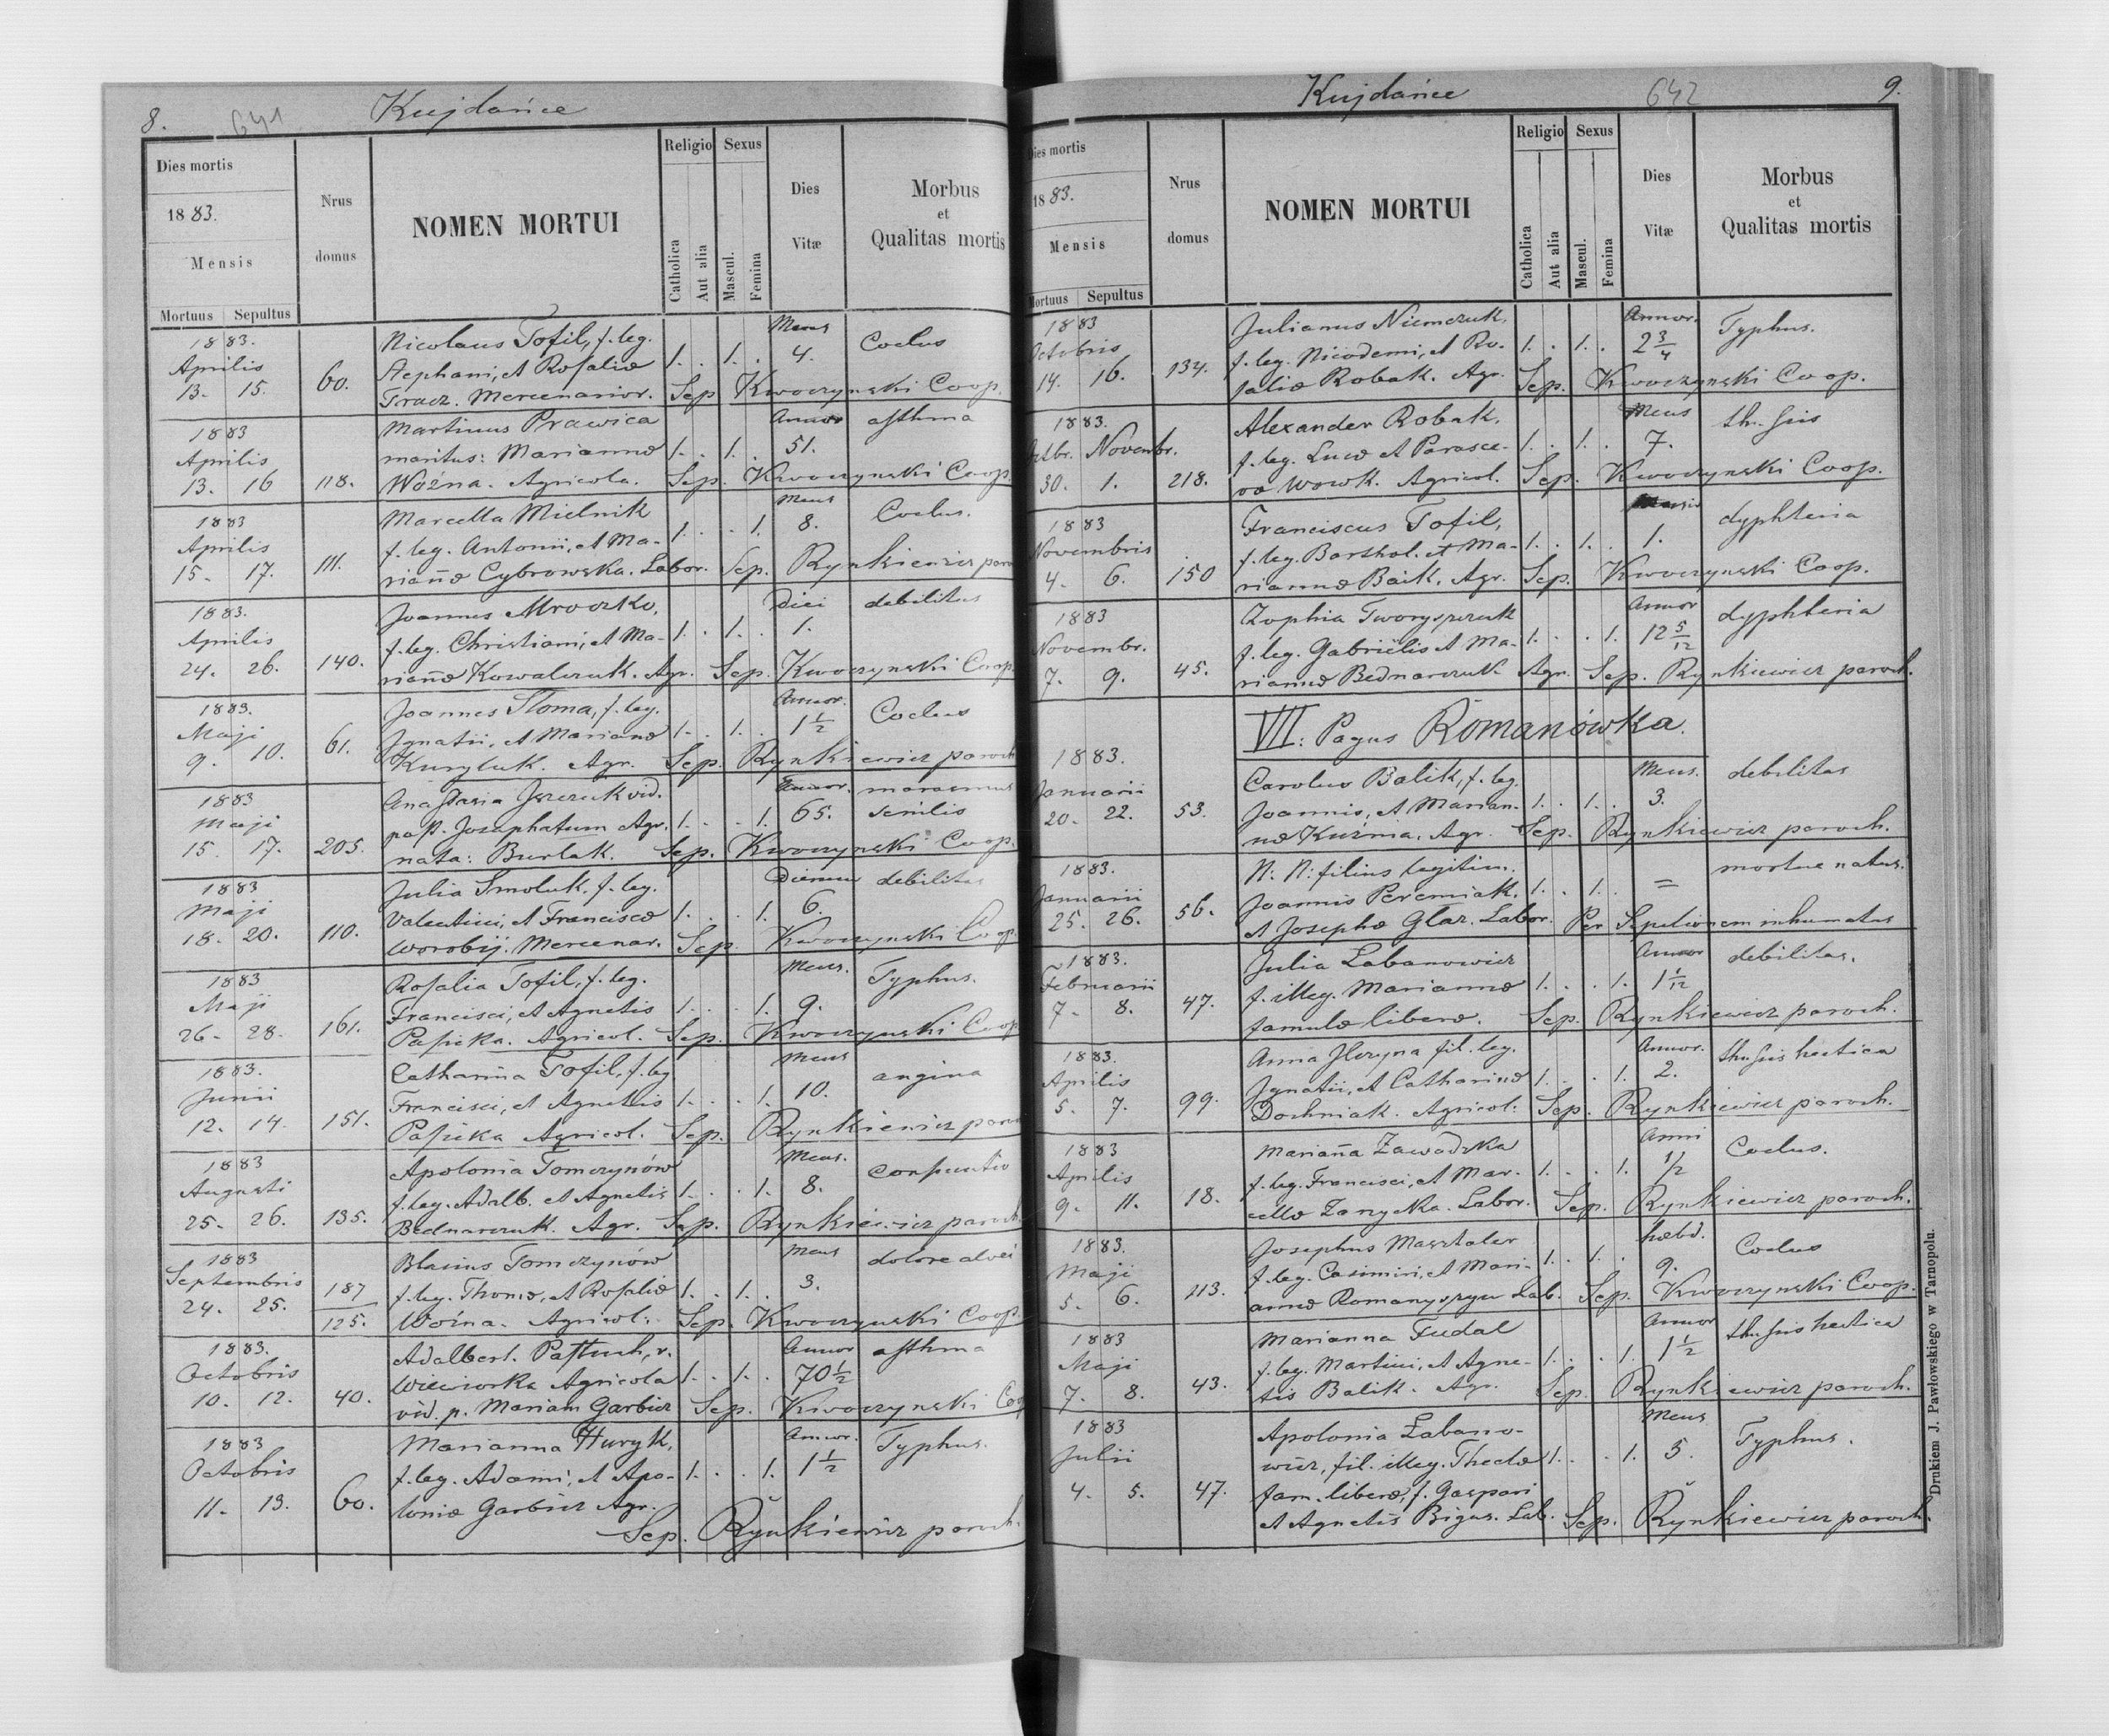 8. 641 Kujdańce
Dies mortis
1883.
Mensis
Mortuus Sepultus
Nrus domus
NOMEN MORTUI
Religio
Catholica
Aut alia
Sexus
Mascul.
Femina
Dies Vitæ
Morbus
et
Qualitas mortis
1883. Nicolaus Tofil, f. leg. Mens Coclus
Aprilis Stephani, et Rosaliæ 1. . 1. . 4.
13. 15. 60. Tracz. Mercenarior. Sep Kwoczynski Coop.
1883 Martinus Prawica Annor asthma
Aprilis maritus: Mariannæ 1. . 1. . 51.
13. 16 118. Woźna. Agricola. Sep. Kwoczynski Coop.
1883 Marcella Mielnik Mens Coclus.
Aprilis f. leg. Antonii, et Ma- 1. . . 1. 8.
15. 17. 111. riañæ Cybrowska. Labor. Sep. Rynkiewicz paro
1883. Joannes Mroczko, Diei debilitas
Aprilis f. leg. Christiani, et Ma- 1. . 1. . 1.
24. 26. 140. riañæ Kowalczuk. Agr. Sep. Kwoczynski Coop.
1883. Joannes Stoma, f. leg. Annor. Coclus
Maji Ignatii, et Marianæ 1. . 1. . 1 1/2
9. 10. 61. Kuryluk. Agr. Sep. Rynkiewicz paroch
1883 Anastasia Jszczuk vid. Annor. marasmus
Maji post. Josaphatum Agr. 1. . . 1. 65. senilis
15. 17. 205. nata: Burlak. Sep. Kwoczynski Coop.
1883 Julia Smoluk, f. leg. Dierum debilitas
Maji Valentini, et Franciscæ 1. . . 1. 6.
18. 20. 110. Worobij. Mercenar. Sep. Kwoczynski Coop.
1883 Rosalia Tofil, f. leg. Mens. Typhus.
Maji Francisci, et Agnetis 1. . . 1. 9.
26. 28. 161. Pasieka. Agricol. Sep. Kwoczynski Coop
1883. Catharina Tofil, f. leg. Mens angina
Junii Francisci, et Agnetis 1. . . 1. 10.
12. 14. 151. Pasieka Agricol. Sep. Rynkiewicz paro
1883 Apolonia Tomczynów Mens.
Augusti f. leg. Adalb. et Agnetis 1. . . 1. 8.
25. 26. 135. Bednarczuk. Agr. Sep. Rynkiewicz paroch
1883 Blasius Tomczynów Mens dolore alvei
Septembris 187 f. leg. Thomæ, et Rosaliæ 1. . 1. . 3.
24. 25. 125. Woźna. Agricol. Sep. Kwoczynski Coop.
1883. Adalbert. Pastuch, v. Annor asthma
Octobris Wiewiorka Agricola 1. . 1. . 70 1/2
10. 12. 40. vid. p. Mariam Garbicz Sep. Kwoczynski Coo
1883 Marianna Huryk, Annor. Typhus.
Octobris f. leg. Adami, et Apo- 1. . . 1. 1 1/2
11. 13. 60. loniæ Garbicz Agr.
Sep. Rynkiewicz paroch.
Kujdańce 642 9.
Dies mortis
1883.
Mensis
Mortuus Sepultus
Nrus domus
NOMEN MORTUI
Religio
Catholica
Aut alia
Sexus
Mascul.
Femina
Dies Vitæ
Morbus
et
Qualitas mortis
1883 Julianus Niemczuk, Annor. Typhus.
Octobris f. leg. Nicodemi, et Ro- 1. . 1. . 2 3/4
14. 16. 134. saliæ Robak. Agr. Sep. Kwoczynski Coop.
1883. Alexander Robak, Mens
Octbr. Novembr. f. leg. Lucæ et Parasce- 1. . 1. . 7.
30. 1. 218. væ Wowk. Agricol. Sep. Kwoczynski Coop.
1883 Franciscus Tofil, Mensis dyphteria
Novembris f. leg. Barthol. et Ma- 1. . 1. . 1.
4. 6. 150 riannæ Baik. Agr. Sep. Kwoczynski Coop.
1883 Zophia Tworyszczuk Annor dyphteria
Novembr. f. leg. Gabrielis et Ma- 1. . . 1. 12 5/12
7. 9. 45. riannæ Bednarczuk Agr. Sep. Rynkiewicz paroch.
VII: Pagus Romanówka.
1883. Carolus Balik, f. leg. Mens. debilitas
Januarii Joannis, et Marian- 1. . 1. . 3.
20. 22. 53. næ Kuźnia. Agr. Sep. Rynkiewicz paroch.
1883. N: N: filius legitim. mortue natus.
Januarii Joannis Peremiak, 1. . 1. . =
25. 26. 56. et Josephæ Glaz. Labor. Per inhumatus
1883. Julia Labanowicz Annor debilitas.
Februarii f. illeg. Mariannæ 1. . . 1. 1 1/12
7. 8. 47. famulæ liberæ. Sep. Rynkiewicz paroch.
1883. Anna fil. leg. Annor. hectica
Aprilis Ignatii, et Catharinæ 1. . . 1. 2.
5. 7. 99. Dochniak. Agricol: Sep. Rynkiewicz paroch.
1883 Mariaña Zawadzka Anni Coclus.
Aprilis f. leg. Francisci, et Mar- 1. . . 1. 1/2
9. 11. 18. cellæ Zarycka. Labor. Sep. Rynkiewicz paroch.
1883. Josephus Masztaler hebd. Coclus
Maji f. leg. Casimiri, et Mari- 1. . 1. . 9.
5. 6. 113. annæ Romanyszyn Lab. Sep. Kwoczynski Coop.
1883 Marianna Fudal Annor hectica
Maji f. leg. Martini, et Agne- 1. . . 1. 1 1/2
7. 8. 43. tis Balik. Agr. Sep. Rynkiewicz paroch.
1883 Apolonia Labano- Mens Typhus.
Julii wicz, fil. illeg. Theclæ 1. . . 1. 5.
4. 5. 47. fam. liberæ, f. Gaspari
et Agnetis Bigus. Lab. Sep. Rynkiewicz paroch.
Drukiem J. Pawłowskiego w Tarnopolu.